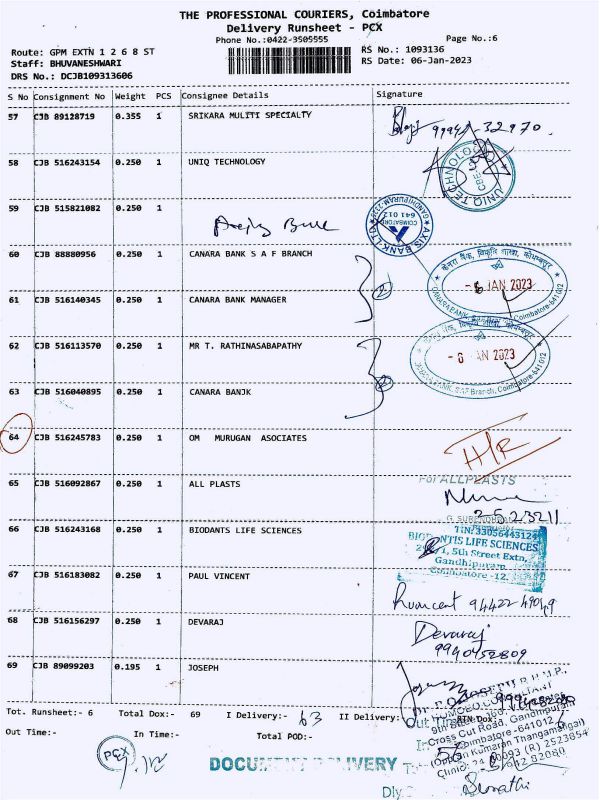 THE PROFESSIONAL COURIERS, Coimbatore
Delivery Runsheet - PCX
Phone No.:0422-3505555
Page No.:6
Route: GPM EXTN 1 2 6 8 ST
RS No.: 1093136
Staff: BHUVANESHWARI
RS Date: 06-Jan-2023
DRS No.: DCJB109313606
S No Consignment No Weight PCS Consignee Details Signature
57 CJB 89128719 0.355 1 SRIKARA MULITI SPECIALTY
58 CJB 516243154 0.250 1 UNIQ TECHNOLOGY
UNIQ TECHNOLOGY
59 CJB 515821082 0.250 1
AXIS BANK LTD
COIMBATORE
641 012
60 CJB 88880956 0.250 1 CANARA BANK S A F BRANCH
2
- 6 JAN 2023
61 CJB 516140345 0.250 1 CANARA BANK MANAGER
Coimbatore-641012
62 CJB 516113570 0.250 1 MR T. RATHINASABAPATHY
- 6 JAN 2023
63 CJB 516040895 0.250 1 CANARA BANJK
2
64 CJB 516245783 0.250 1 OM MURUGAN ASOCIATES
65 CJB 516092867 0.250 1 ALL PLASTS
For ALLPLASTS
66 CJB 516243168 0.250 1 BIODANTS LIFE SCIENCES
TIN:33056443124
BIODANTIS LIFE SCIENCES
5th Street Extn,
Gandhipuram
Coimbatore -12.
67 CJB 516183082 0.250 1 PAUL VINCENT
68 CJB 516156297 0.250 1 DEVARAJ
Devaraj
9940452809
69 CJB 89099203 0.195 1 JOSEPH
Tot. Runsheet:- 6 Total Dox:- 69 I Delivery:- 63 II Delivery:- RTN Dox:-
Out Time :-
Cross Cut Road, Gandhipuram
Coimbatore-641012
Out Time :- In Time:- Total POD:-
PCX
DOCUMENT DELIVERY